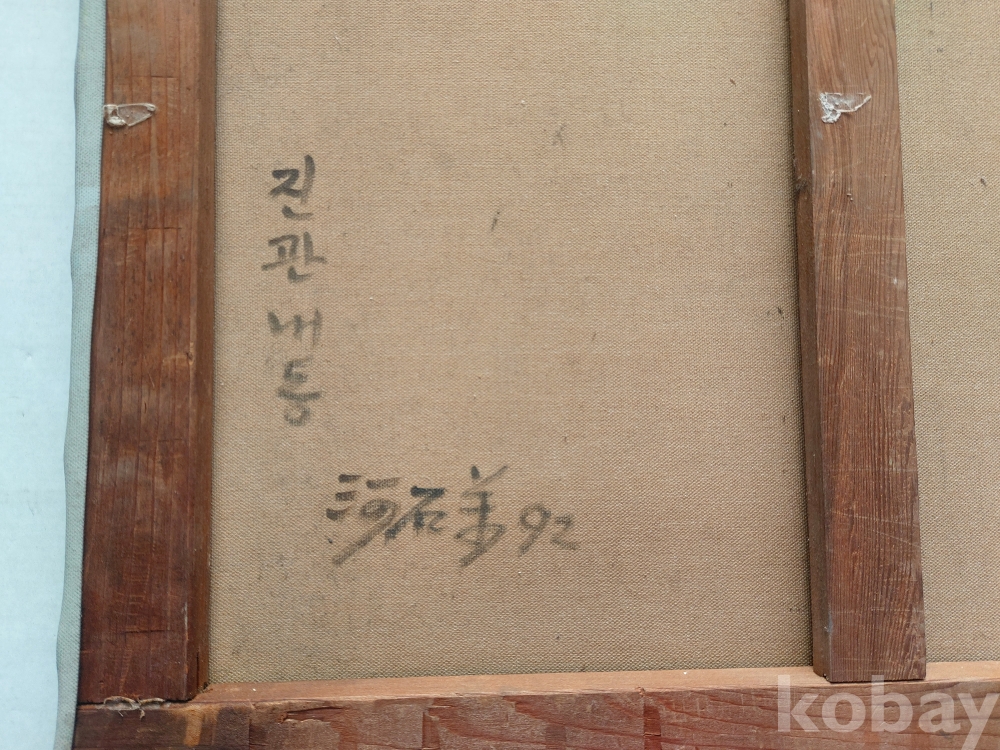 진관내동
河石美 92
kobay